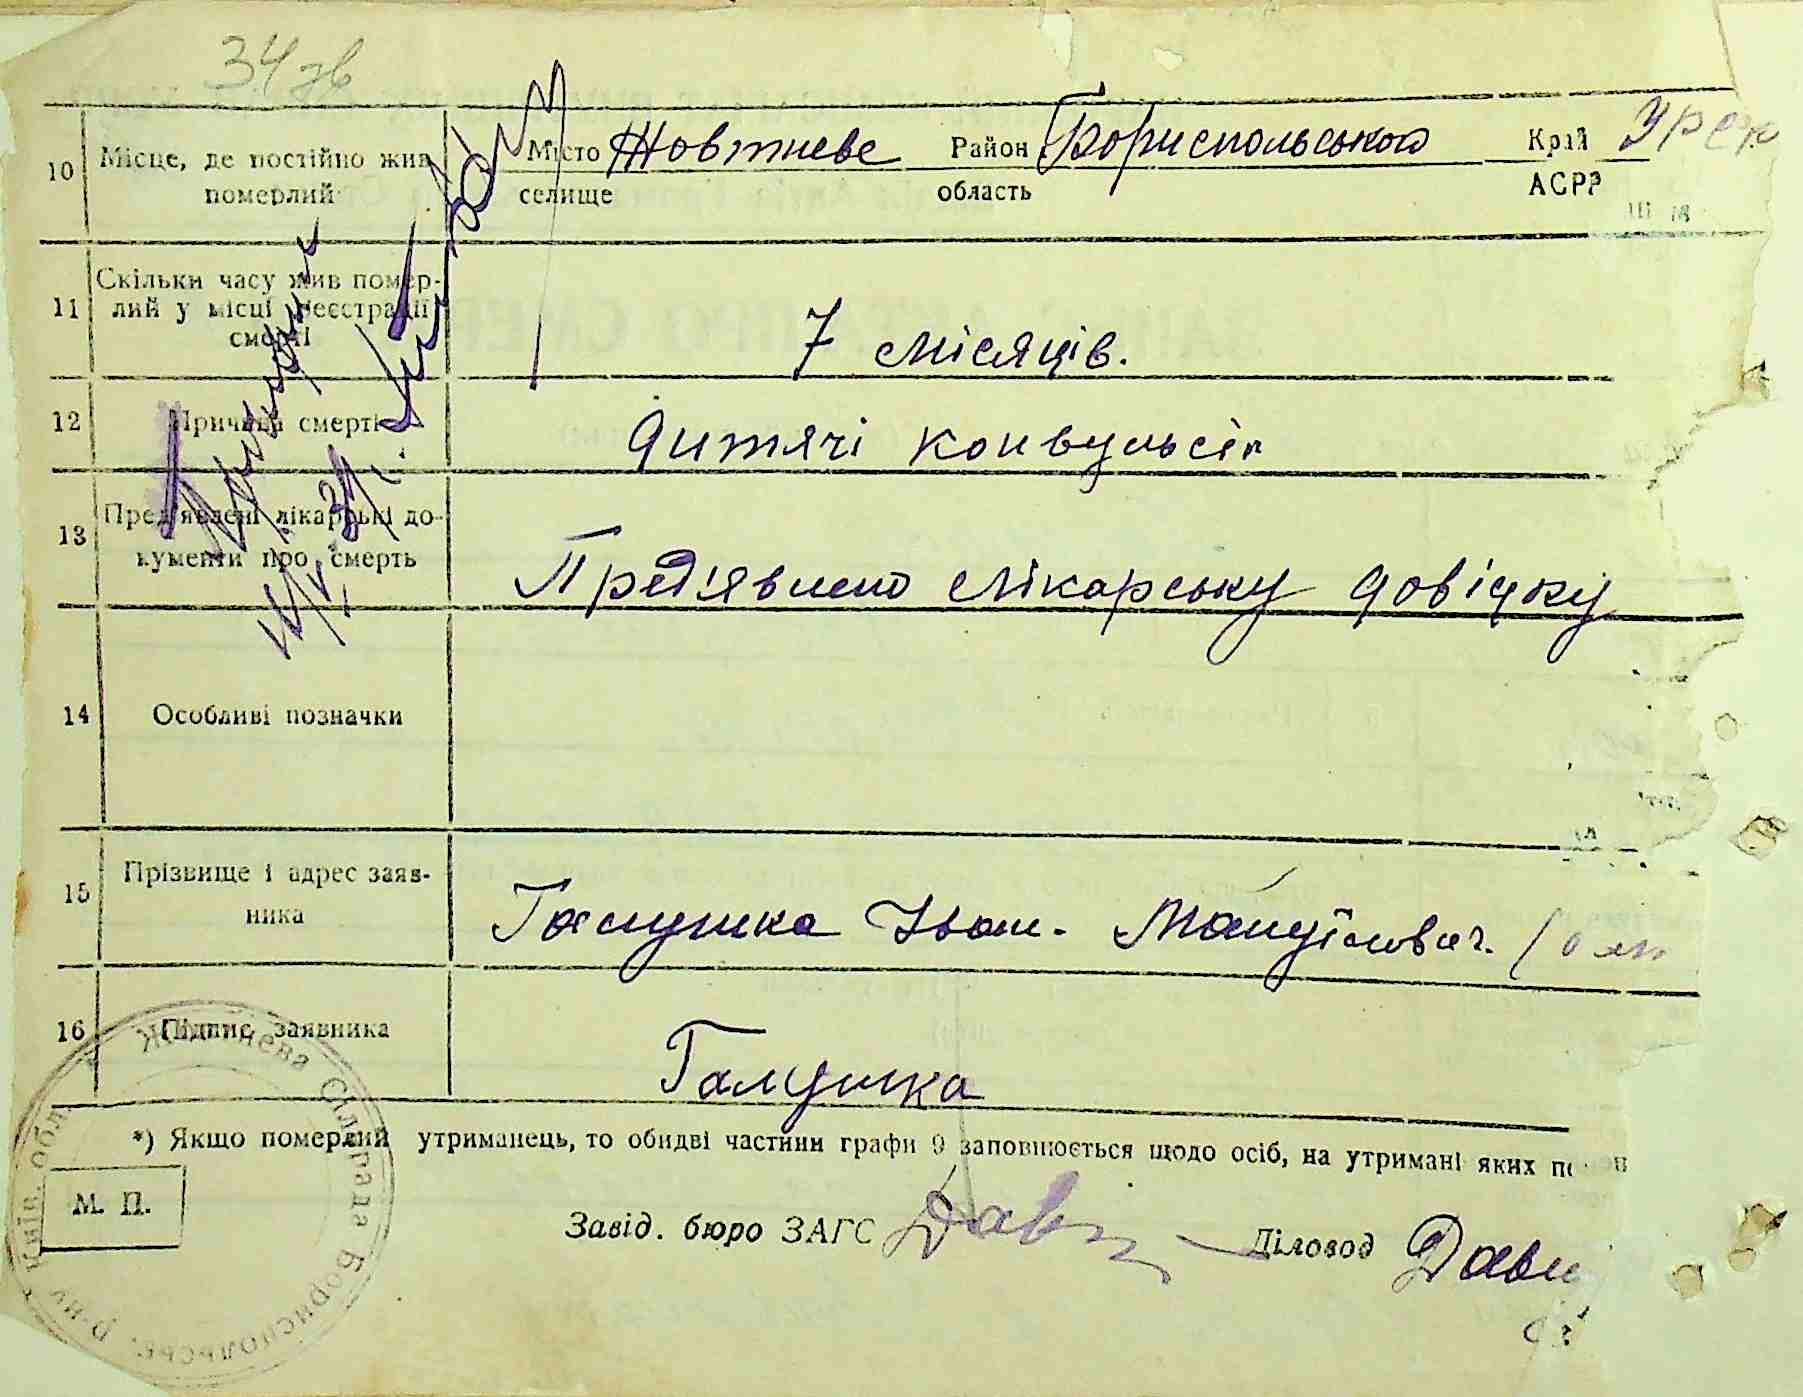 34 зв
10 Місце, де постійно жив померлий
Місто Жовтневе Район Бориспольського Край УРСР
селище область АСРР
11 Скільки часу жив помер-
лий у місці реєстрації
смерті
7 місяців.
12 Причина смерті
дитячі конвульсії
13 Пред'явлені лікарські до-
кументи про смерть
Пред'явлено лікарську довідку
14 Особливі позначки
15 Прізвище і адрес заяв-
ника
Галушка Іван. Мануїлович.
16 Підпис заявника
Галушка
*) Якщо померлий утриманець, то обидві частини графи 9 заповнюється щодо осіб, на утримані яких
М. П.
Завід. бюро ЗАГС Діловод
Жовтнева Сільрада Бориспольськ. р-ну Київ. обл.